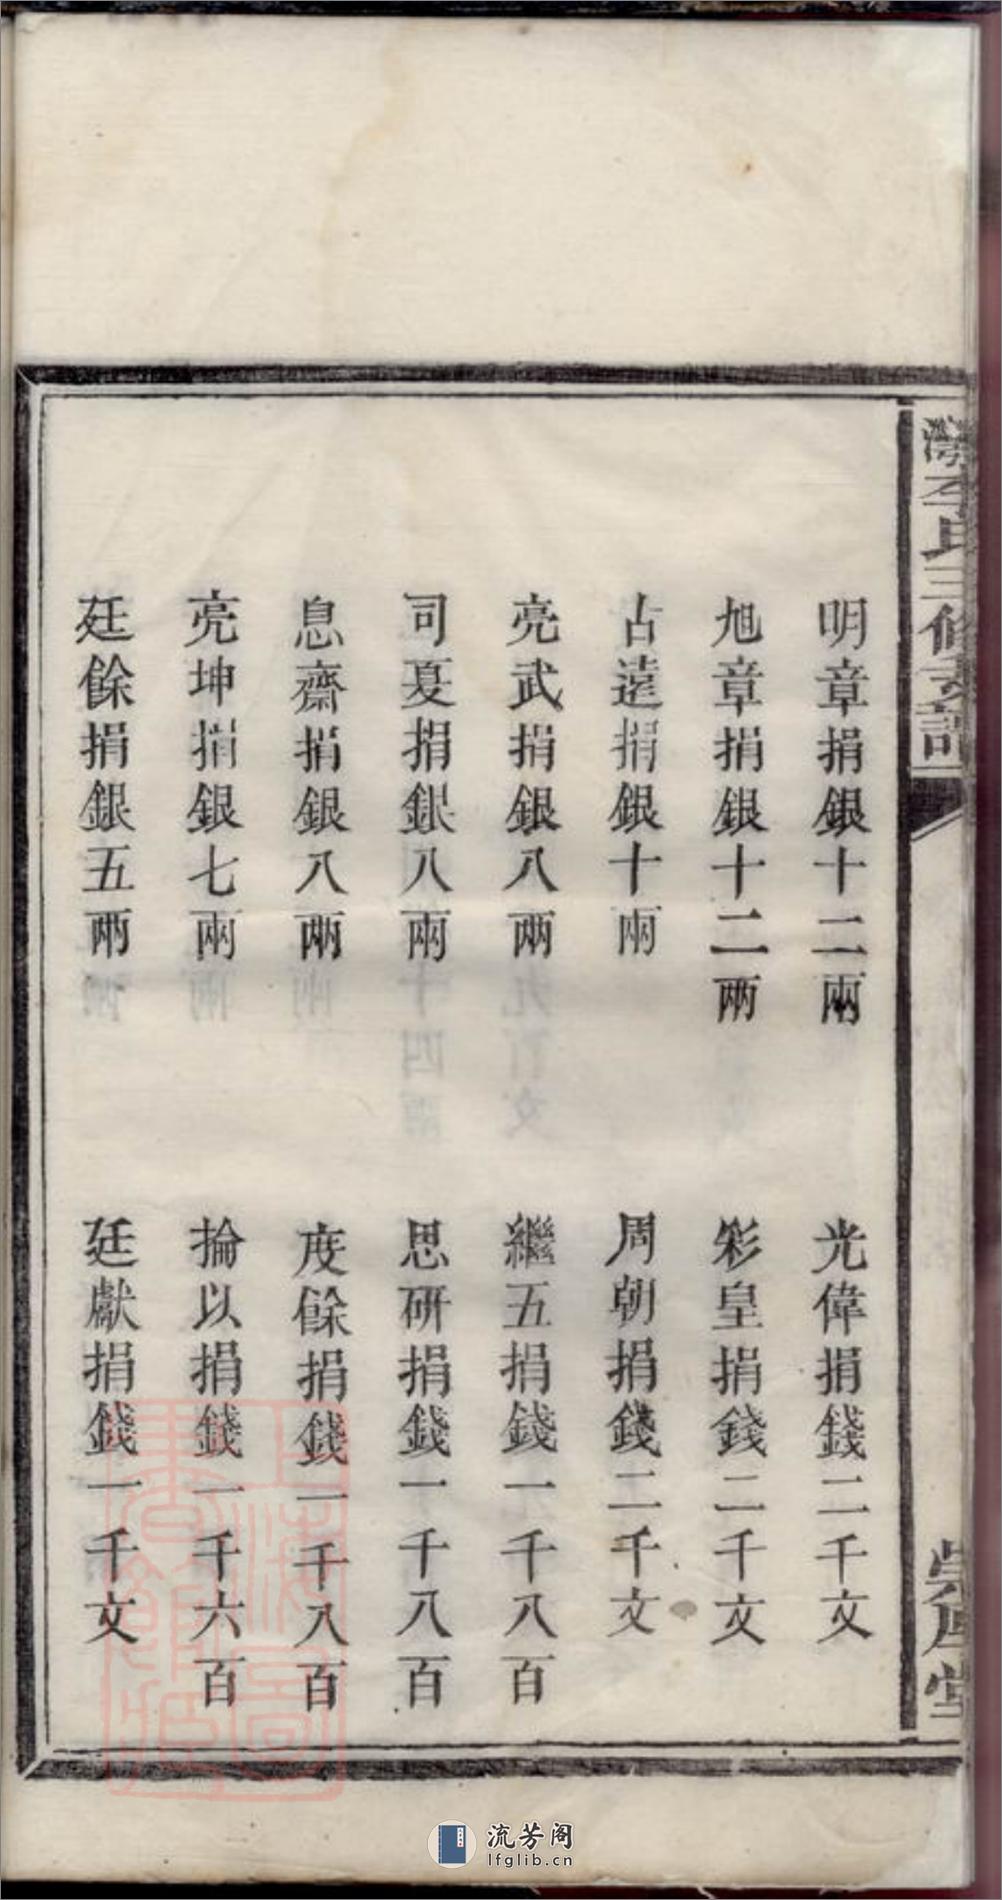 李氏三修支譜
崇厚堂
明章捐銀十二兩
旭章捐銀十二兩
占遠捐銀十兩
亮武捐銀八兩
司夏捐銀八兩
息齋捐銀八兩
亮坤捐銀七兩
廷餘捐銀五兩
光偉捐錢二千文
彩皇捐錢二千文
周朝捐錢二千文
繼五捐錢一千八百
思研捐錢一千八百
度餘捐錢一千八百
掄以捐錢一千六百
廷獻捐錢一千文
上海圖書館藏
流芳阁
lfglib.cn